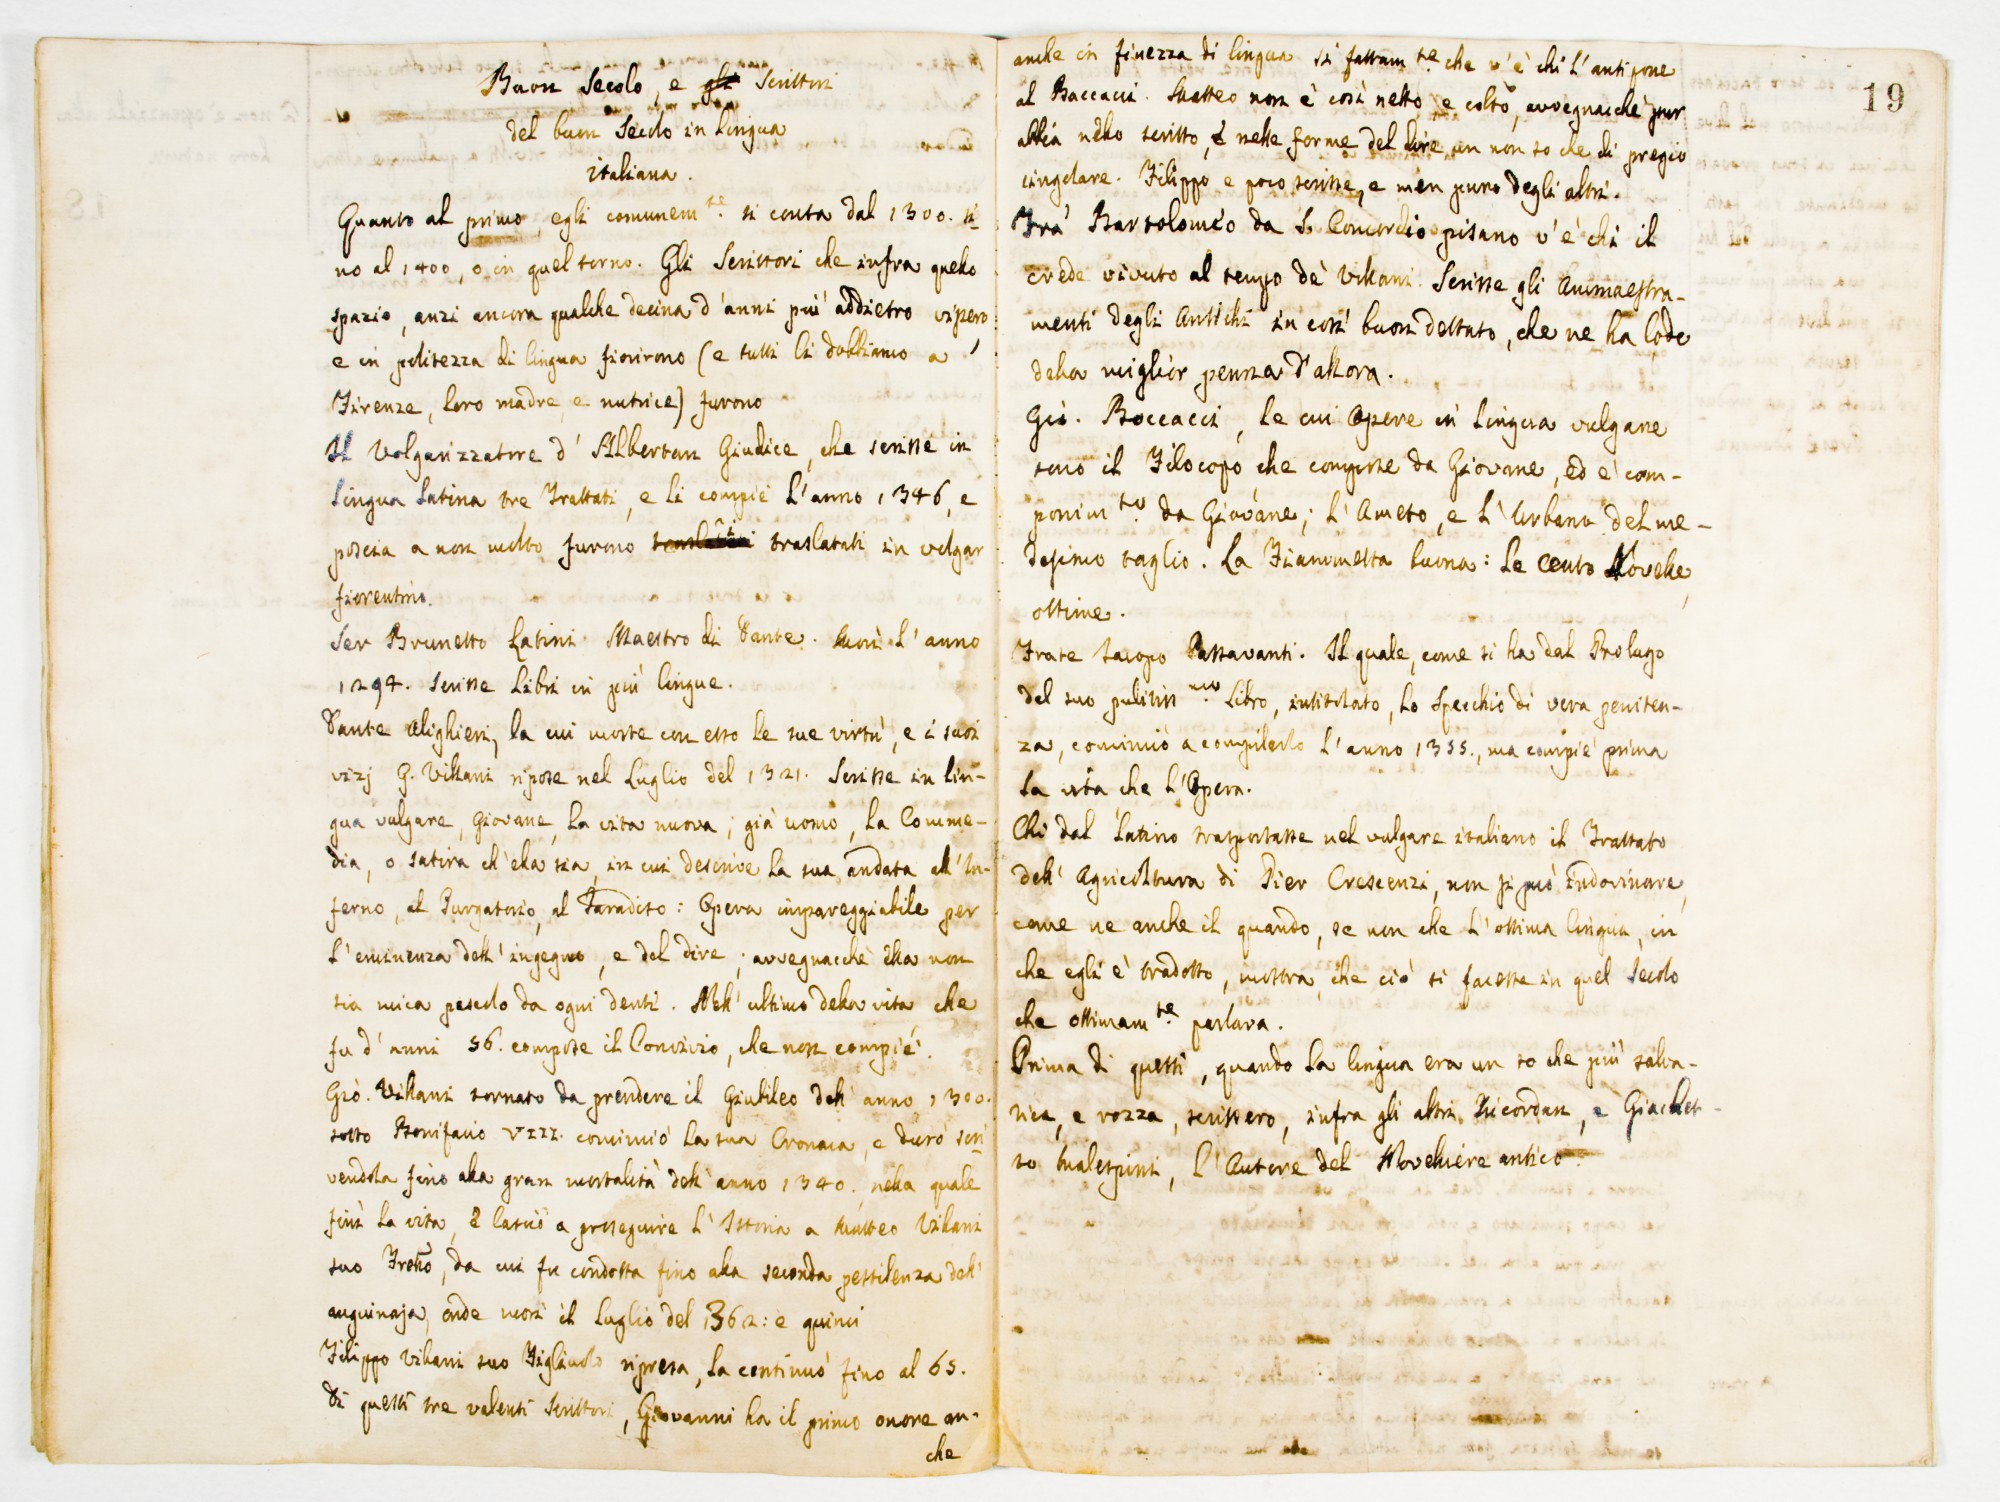 Buon Secolo, e gli Scrittori
del buon Secolo in lingua
italiana.
Quanto al primo, egli comunem.te si conta dal 1300. si-
no al 1400, o in quel torno. Gli Scrittori che infra quello
spazio, anzi ancora qualche decina d'anni più addietro vissero
e in politezza di lingua fiorirono (e tutti li dobbiamo a
Firenze, loro madre, e nutrice) furono
Il Volgarizzatore d'Albertan Giudice, che scrisse in
lingua latina tre Trattati, e li compiè l'anno 1346, e
poscia a non molto furono traslatati in vulgar
fiorentino.
Ser Brunetto Latini Maestro di Dante. Morì l'anno
1294. Scrisse Libri in più lingue.
Dante Alighieri, la cui morte con esso le sue virtù, e i suoi
vizj G. Villani ripose nel Luglio del 1321. Scrisse in lin-
gua vulgare, Giovane, la vita nuova; già uomo, la Comme-
dia, o satira ch'ella sia, in cui descrive la sua andata all'In-
ferno, al Purgatorio, al Paradiso: Opera impareggiabile per
l'eminenza dell'ingegno, e del dire; avvegnacchè ella non
sia mica pescolo da ogni denti. Nell'ultimo della vita che
fu d'anni 56. compose il Convivio, che non compiè.
Gio. Villani tornato da prendere il Giubileo dell'anno 1300.
sotto Bonifacio VIII. cominciò la sua Cronaca, e durò scri-
vendola fino alla gran mortalità dell'anno 1340. nella quale
finì la vita, e lasciò a proseguire l'Istoria a Matteo Villani
suo Frello, da cui fu condotta fino alla seconda pestilenza dell'
anguinaja, onde morì il Luglio del 1362: e quinci
Filippo Villani suo Figliuolo ripresa, la continuò fino al 65.
Di questi tre valenti Scrittori, Giovanni ha il primo onore an-
che
19
anche in finezza di lingua si fattam.te che v'è chi l'antipone
al Boccacci. Matteo non è così netto, e colto, avvegnacchè pur
abbia nello scritto, e nelle forme del dire un non so che di pregio
singolare. Filippo e poco scrisse, e men puro degli altri.
Frà Bartolomeo da S. Concordio pisano v'è chi il
crede vivuto al tempo de' Villani. Scrisse gli Ammaestra-
menti degli Antichi in così buon dettato, che ne ha lode
della miglior penna d'allora.
Gio. Boccacci, le cui Opere in lingua vulgare
sono il Filocopo, che compose da Giovane, ed è com-
ponim.to da Giovane; l'Ameto, e l'Urbano del me-
desimo taglio. La Fiammetta buona: le cento Novelle,
ottime.
Frate Iacopo Passavanti. Il quale, come si ha dal Prologo
del suo pulitiss.mo Libro, intitolato, lo Specchio di vera peniten-
za, cominciò a compilarlo l'anno 1355., ma compiè prima
la vita che l'Opera.
Chi dal Latino trasportasse nel vulgare italiano il Trattato
dell'Agricoltura di Pier Crescenzi, non si può indovinare,
come ne anche il quando, se non che l'ottima lingua, in
che egli è tradotto, mostra, che ciò si facesse in quel Secolo
che ottimam.te parlava.
Prima di questi, quando la lingua era un so che più salva-
tica, e rozza, scrissero, infra gli altri, Ricordan, e Giachet-
to Malespini, l'Autore del Novelliere antico.